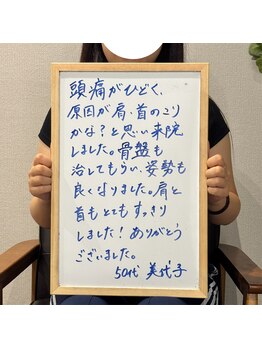 頭痛がひどく、
原因が肩、首のこり
かな？と思い来院
しました。骨盤も
治してもらい、姿勢も
良くなりました。肩と
首もとてもすっきり
しました！ありがとう
ございました。
50代 美代子